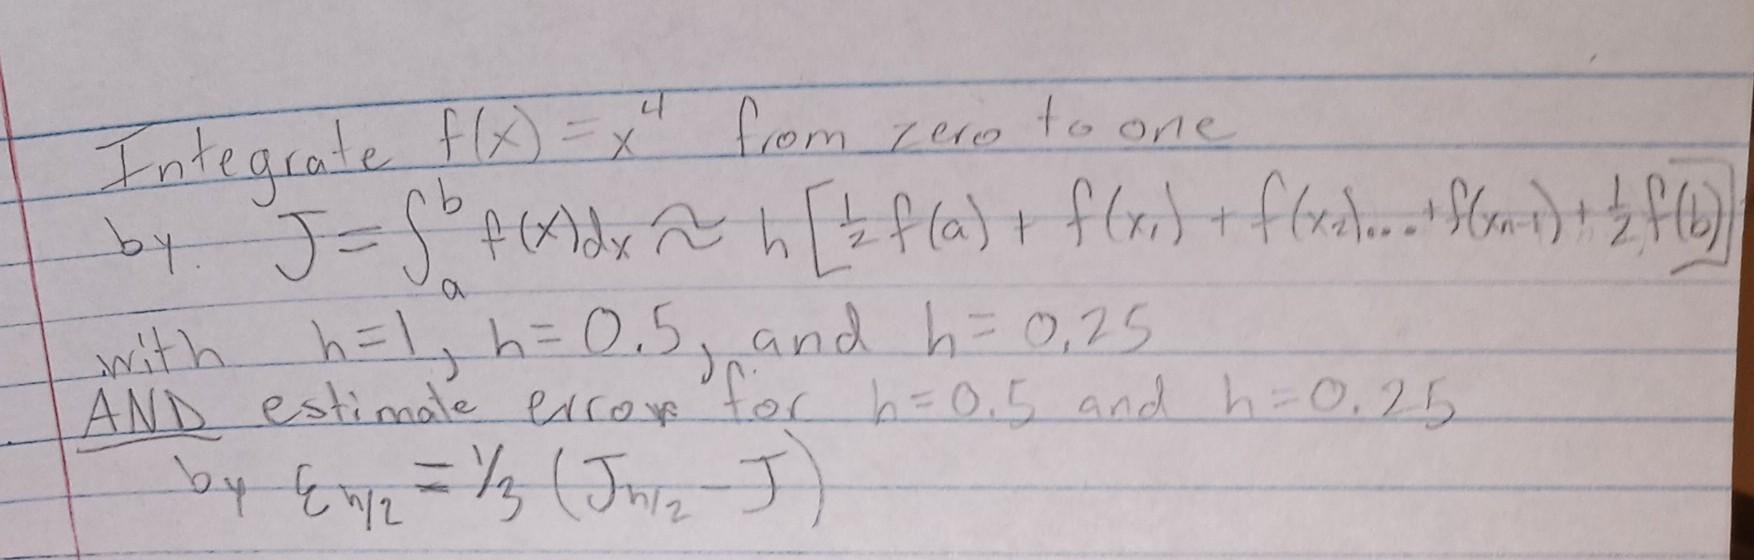 Integrate f(x) = x⁴ from zero to one
by. J = ∫ₐᵇ f(x)dx ≈ h [½ f(a) + f(x₁) + f(x₂)... + f(xₙ₋₁) + ½ f(b)]
with h=1, h=0.5, and h=0.25
AND estimate errors for h=0.5 and h=0.25
by ε_{h/2} = 1/3 (J_{h/2} - J)